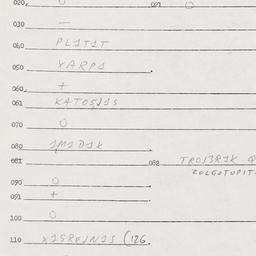 020. O 021 O
030 —
040 PLATAT
050 YARPA .
060 +
061 KATOSJAS
070 O
080 AMADAK .
081 082 TROJBRAK
ZOLGOTUPIT
090 O .
091 + .
100 O
110 (126